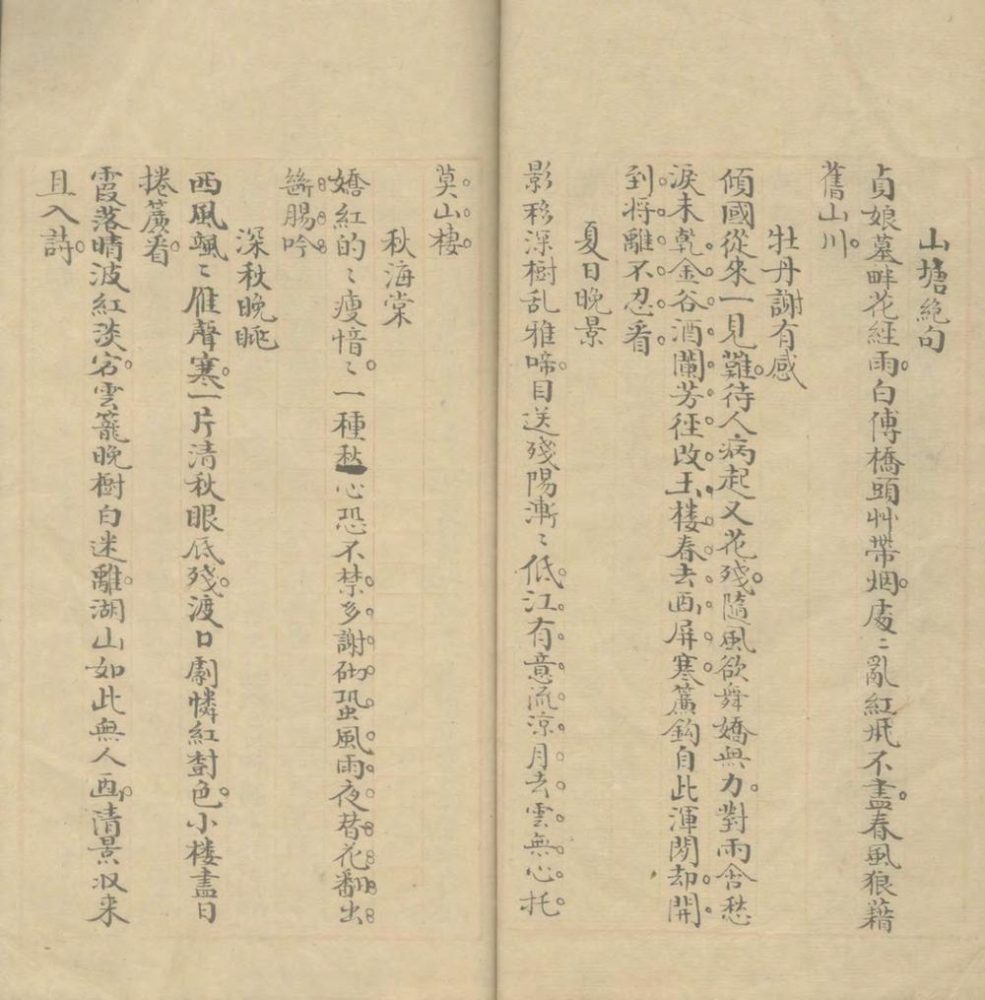 山塘絕句
貞娘墓畔花經雨白傅橋頭艸帶烟處〻亂紅飛不盡春風狼藉
舊山川
牡丹謝有感
傾國從來一見難待人病起又花殘隨風欲舞嬌無力對雨含愁
淚未乾金谷酒闌芳徑改玉樓春去画屏寒簾鈎自此渾閒却開
到將離不忍看
夏日晚景
影移深樹乱雅啼目送殘陽漸〻低江有意流涼月去雲無心托
莫山樓
秋海棠
嬌紅的〻瘦愔〻一種愁心恐不禁多謝砌蛩風雨夜替花翻出
斷腸吟
深秋晚眺
西風颯〻雁聲寒一片清秋眼底殘渡口劇憐紅樹色小樓盡日
捲簾看
霞落晴波紅淡宕雲籠晚樹白迷離湖山如此無人画清景收来
且入詩